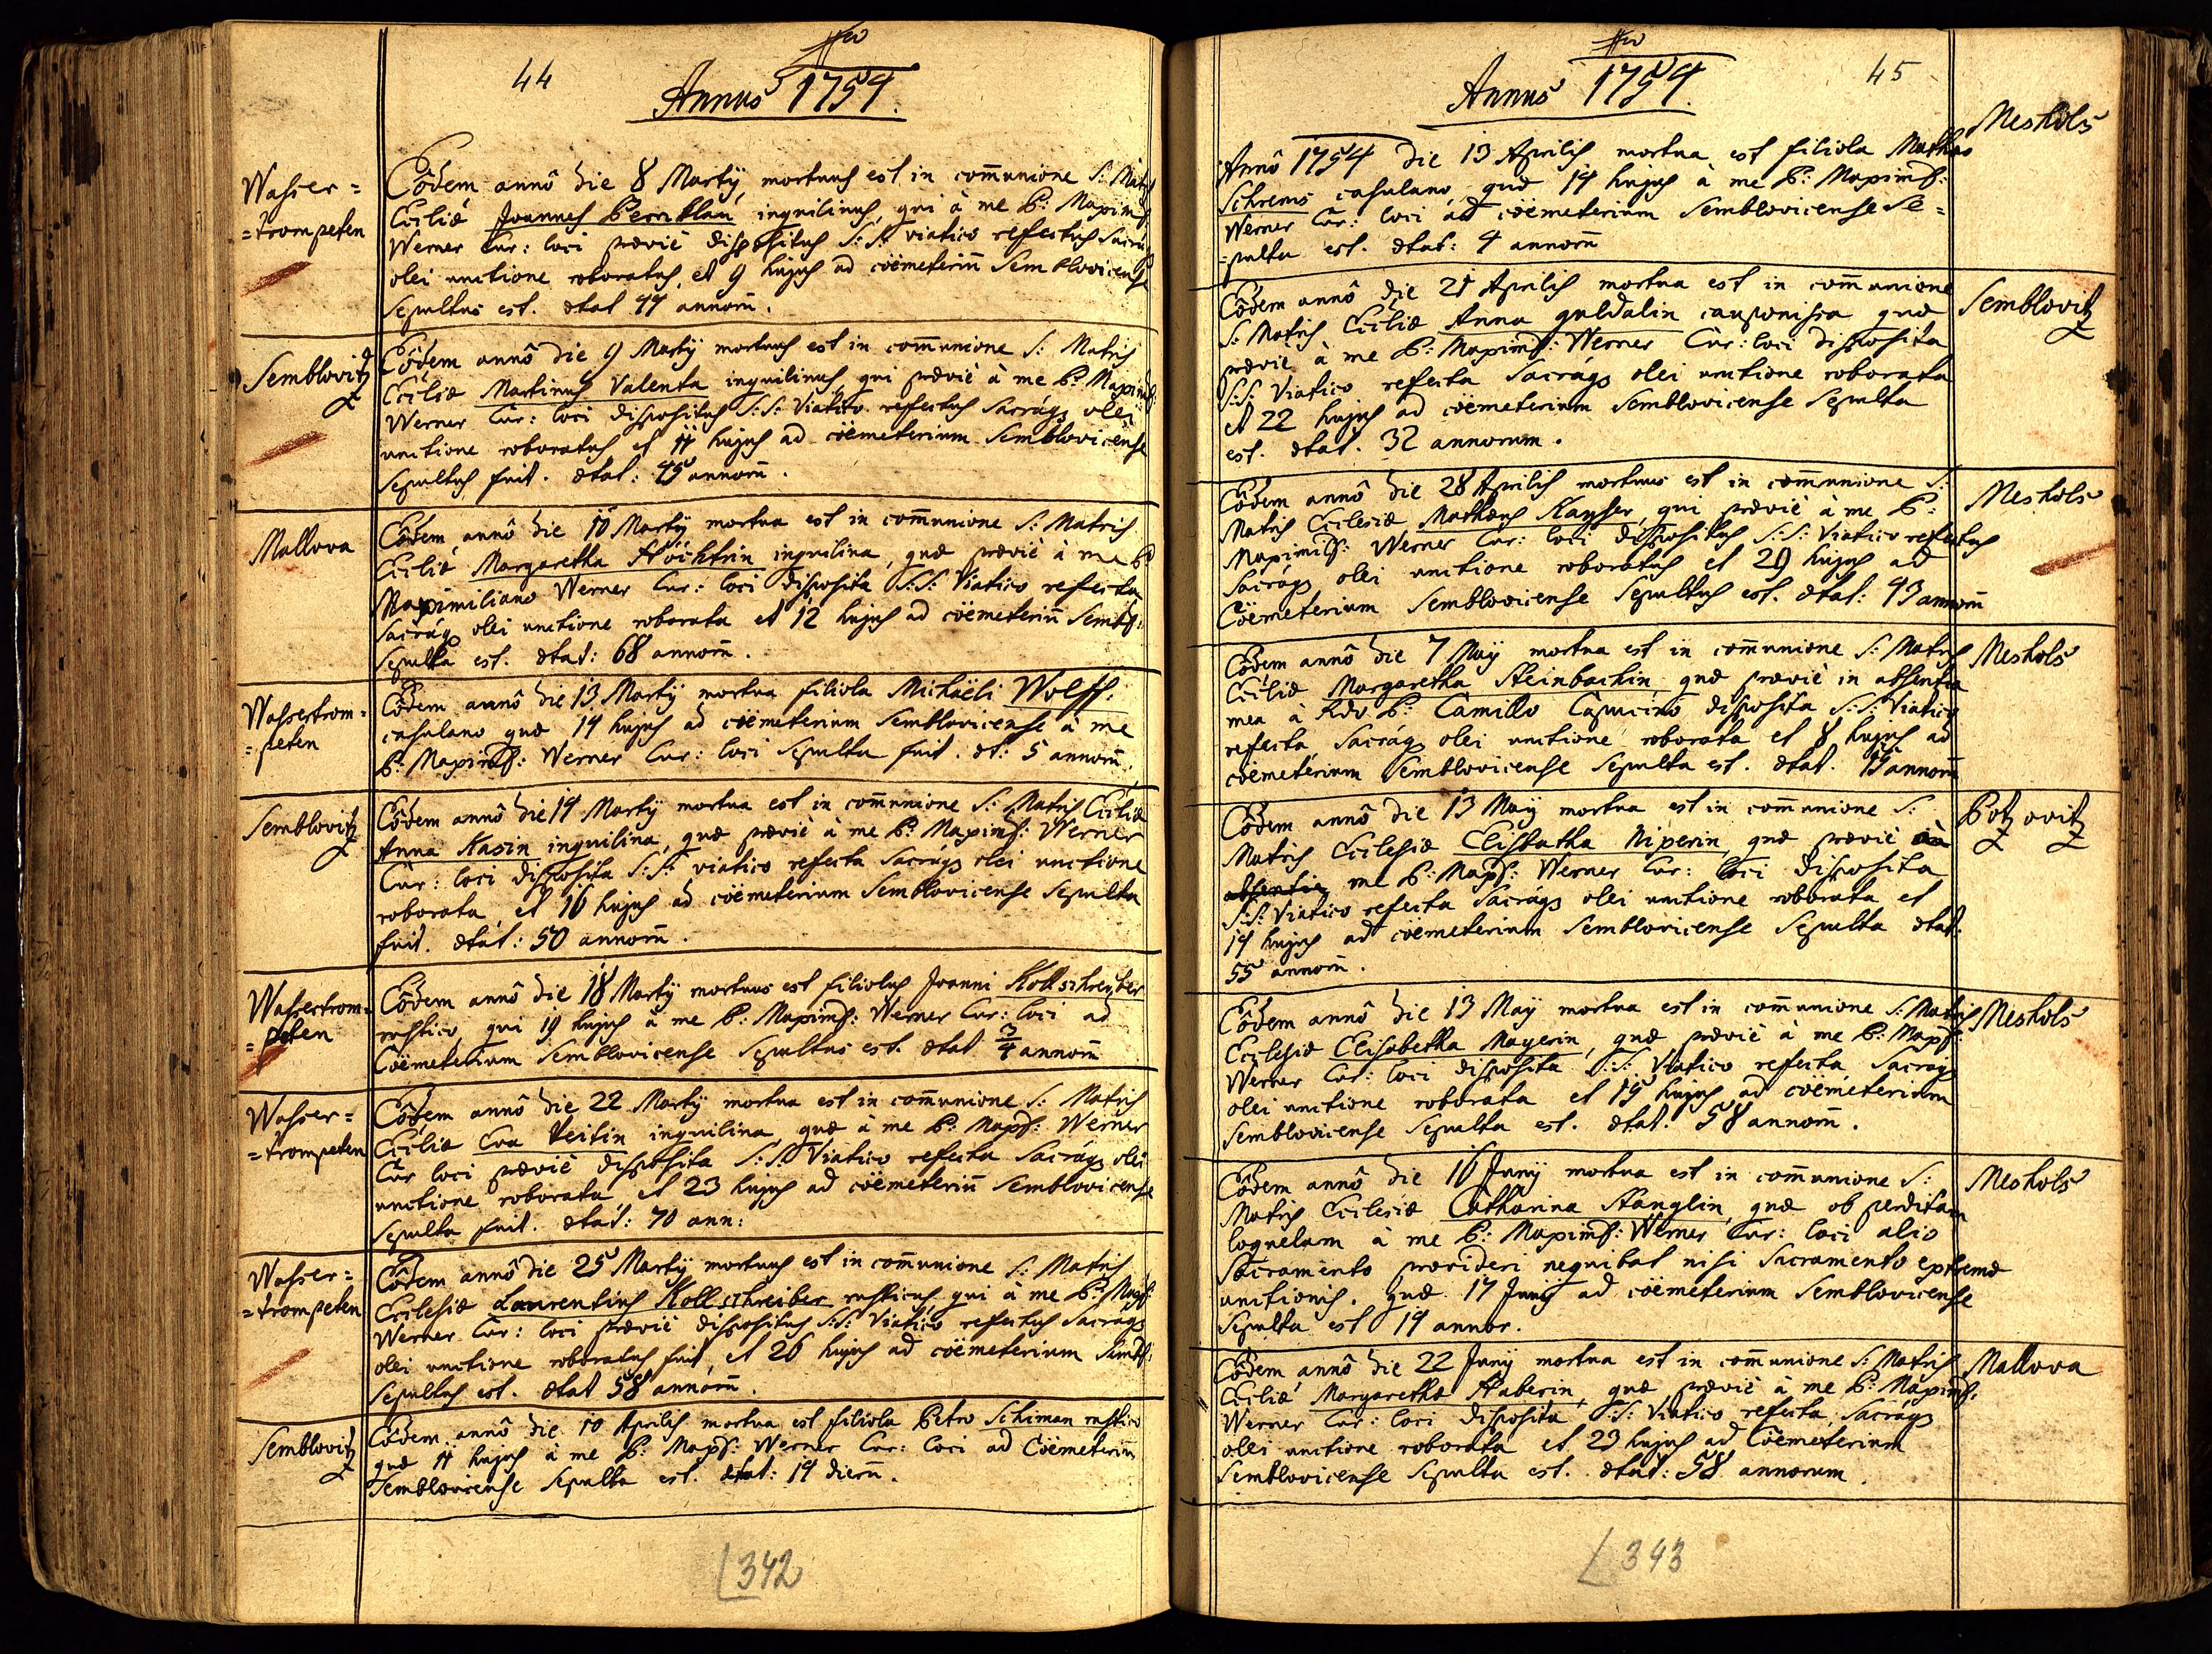 44
Annus 1754.
Wasser=
=trompeten
Eôdem annô die 8 Martÿ mortuus est in com̄unione S: Matris
Ecclìæ Joannes Perrklau inquilinus, qui à me P: Maxim̄:
Werner Cur: loci præviè dispositus S:S: viatico refectus Sacráq3
olei unctione roboratus, et 9 hujus ad cöemeteriū Semblovicense
Sepultus est. ætat 44 annorū.
Semblovitz
Eôdem annô die 9 Martÿ mortuus est in com̄unione S: Matris
Ecclìæ Martinus Valenta inquilinus, qui præviè à me P: Maxim̄:
Werner Cur: loci dispositus S:S: Viatico refectus Sacráq3 olei
unctione roboratus et 11 hujus ad cöemeterium Semblovicense
Sepultus fuit. ætat: 45 annorū.
Mallova
Eôdem annô die 10 Martÿ mortua est in com̄unione S: Matris
Ecclìæ Margaretha Höchtrin inquilina, quæ præviè à me P
Maximiliano Werner Cur: loci disposita S:S: Viatico refecta
Sacráq3 olei unctione roborata et 12 hujus ad cöemeteriū Sembl:
Sepulta est. ætat: 68 annorū.
Wassertrom=
=peten
Eôdem annô die 13 Martÿ mortua filiola Michaëli Wolff.
casulano quæ 14 hujus ad cöemeterium Semblovicense à me
P: Maxim̄: Werner Cur: loci Sepulta fuit. æt: 5 annorū.
Semblovitz
Eôdem annô die 14 Martÿ mortua est in com̄unione S: Matris Ecclìæ
Anna Kasin inquilina, quæ præviè à me P: Maxim̄: Werner
Cur: loci disposita S:S: viatico refecta Sacráq3 olei unctione
roborata, et 16 hujus ad cöemeterium Semblovicense Sepulta
fuit. ætat: 50 annorū.
Wassertrom=
=peten
Eôdem annô die 18 Martÿ mortuus est filiolus Joanni Kollschreiber
rustico, qui 19 hujus à me P: Maxim̄: Werner Cur: loci ad
Cöemeterium Semblovicense Sepultus est. ætat 3/4 annorū
Wasser=
=trompeten
Eôdem annô die 22 Martÿ mortua est in com̄unione S: Matris
Ecclìæ Eva Veitin inquilina quæ à me P: Maxf: Werner
Cur loci præviè disposita S:S: Viatico refecta Sacráq3 olei
unctione roborata, et 23 hujus ad cöemeteriū Semblovicense
Sepulta fuit. ætat: 70 ann:
Wasser=
=trompeten
Eôdem annô die 25 Martÿ mortuus est in com̄unione S: Matris
Ecclesiæ Laurentius Kollschreiber rusticus, qui à me P: Maxf:
Werner Cur: loci præviè dispositus S:S: Viatico refectus Sacráq3
olei unctione roboratus fuit, et 26 hujus ad cöemeterium Sembl:
Sepultus est. ætat 58 annorū.
Semblovitz
Eôdem annô die 10 Aprilis mortua est filiola Petro Schiman rustico
quæ 11 hujus à me P: Maxf: Werner Cur: loci ad Cöemeteriū
Semblovicense Sepulta est. ætat: 14 dierū.
342
Annus 1754.
45
Meshols
Annô 1754 die 13 Aprilis mortua est filiola Mathæo
Schrems casulano, quæ 14 hujus à me P: Maximf:
Werner Cur: loci ad cöemeterium Semblovicense Se=
=pulta est. ætat: 4 annorū
Semblovitz
Eôdem annô die 21 Aprilis mortua est in com̄unione
S: Matris Ecclìæ Anna guldalin cauponissa quæ
præviè à me P: Maxim̄f: Werner Cur: loci disposita
S:S: Viatico refecta Sacráq3 olei unctione roborata
et 22 hujus ad cöemeterium Semblovicense Sepulta
est. ætat. 32 annorum.
Meshols
Eôdem annô die 28 Aprilis mortuus est in com̄unione S:
Matris Ecclesiæ Mathæus Kayser, qui præviè à me P:
Maximif: Werner Cur: loci dispositus S:S: Viatico refectus
Sacráq3 olei unctione roboratus et 29 hujus ad
Cöemeterium Semblovicense Sepultus est. ætat: 43 annorū
Meshols
Eôdem annô die 7 Maÿ mortua est in com̄unione S: Matris
Ecclìæ Margaretha Steinbachin quæ præviè in absentia
mea à Rdo P: Camillo Capucino disposita S:S: Viatico
refecta Sacráq3 olei unctione roborata et 8 hujus ad
cöemeterium Semblovicense Sepulta est. ætat. annorū
Potzovitz
Eôdem annô die 13 Maÿ mortua est in com̄unione S:
Matris Ecclesiæ Elisbatha Niperin, quæ præviè à
absentia me P: Maxf: Werner Cur: loci disposita
S:S: Viatico refecta Sacráq3 olei unctione roborata et
14 hujus ad cöemeterium Semblovicense Sepulta ætat:
55 annorū.
Meshols
Eôdem annô die 13 Maÿ mortua est in com̄unione S: Matris
Ecclesiæ Elisabetha Mayerin, quæ præviè à me P: Maxf:
Werner Cur: loci disposita S:S: Viatico refecta Sacráq3
olei unctione roborata et 15 hujus ad cöemeterium
Semblovicense Sepulta est. ætat. 58 annorū.
Meshols
Eôdem annô die 16 Junÿ mortua est in com̄unione S:
Matris Ecclesiæ Catharina Stanglin, quæ ob perditam
loquelam à me P: Maxim̄f: Werner Cur: loci alio
Sacramento provideri nequibat nisi Sacramento extremæ
unctionis. quæ 17 Junÿ ad cöemeterium Semblovicense
Sepulta est 19 annor.
Mallova
Eôdem annô die 22 Junÿ mortua est in com̄unione S: Matris
Ecclìæ Margaretha Haberin, quæ præviè à me P: Maxim̄f:
Werner Cur: loci disposita S:S: Viatico refecta, Sacráq3
olei unctione roborata et 23 hujus ad Cöemeterium
Semblovicense Sepulta est. ætat: 58 annorum.
343